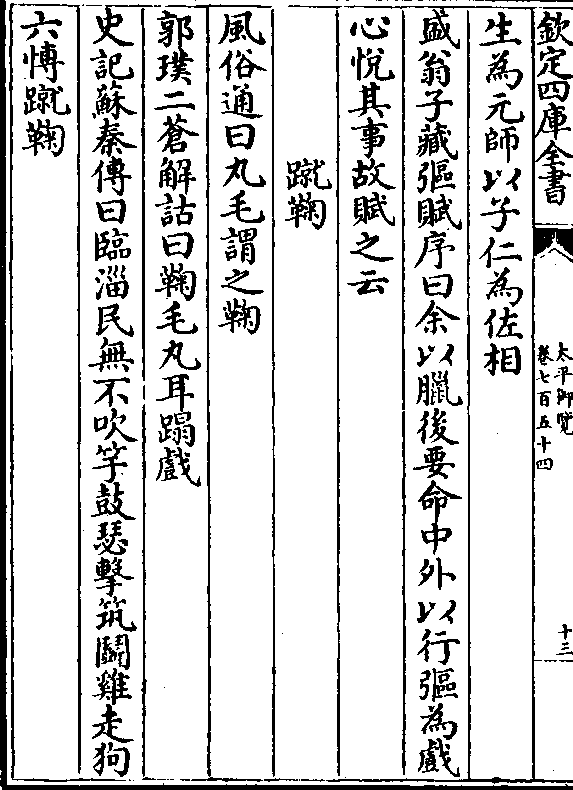 欽定四庫全書
太平御覽
卷七百五十四
十三
生為元師以子仁為佐相
盛翁子藏彄賦序曰余以臘後要命中外以行彄為戲
心悅其事故賦之云
蹴鞠
風俗通曰丸毛謂之鞠
郭璞二蒼解詁曰鞠毛丸耳蹋戲
史記蘇秦傳曰臨淄民無不吹竽鼓瑟擊筑鬬雞走狗
六愽蹴鞠